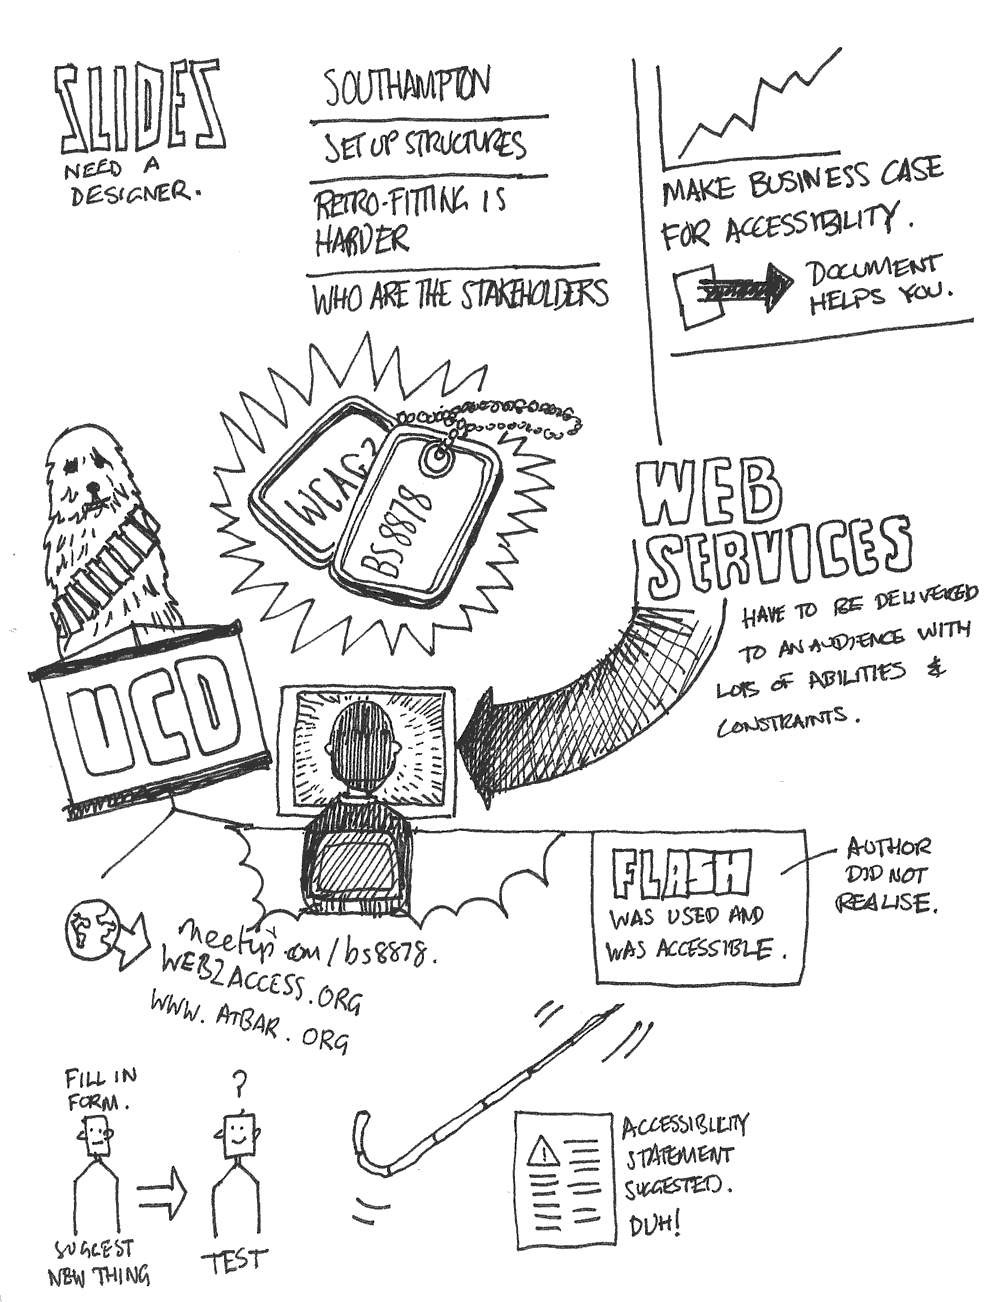 SLIDES
NEED A
DESIGNER.
SOUTHAMPTON
SET UP STRUCTURES
RETRO-FITTING IS
HARDER
WHO ARE THE STAKEHOLDERS
MAKE BUSINESS CASE
FOR ACCESSIBILITY.
DOCUMENT
HELPS YOU.
WCAG2
BS8878
UCD
WEB
SERVICES
HAVE TO BE DELIVERED
TO AN AUDIENCE WITH
LOTS OF ABILITIES &
CONSTRAINTS.
FLASH
WAS USED AND
WAS ACCESSIBLE.
AUTHOR
DID NOT
REALISE.
meetup.com/bs8878.
WEB2ACCESS.ORG
WWW.ATBAR.ORG
FILL IN
FORM.
SUGGEST
NEW THING
?
TEST
!
ACCESSIBILITY
STATEMENT
SUGGESTED.
DUH!